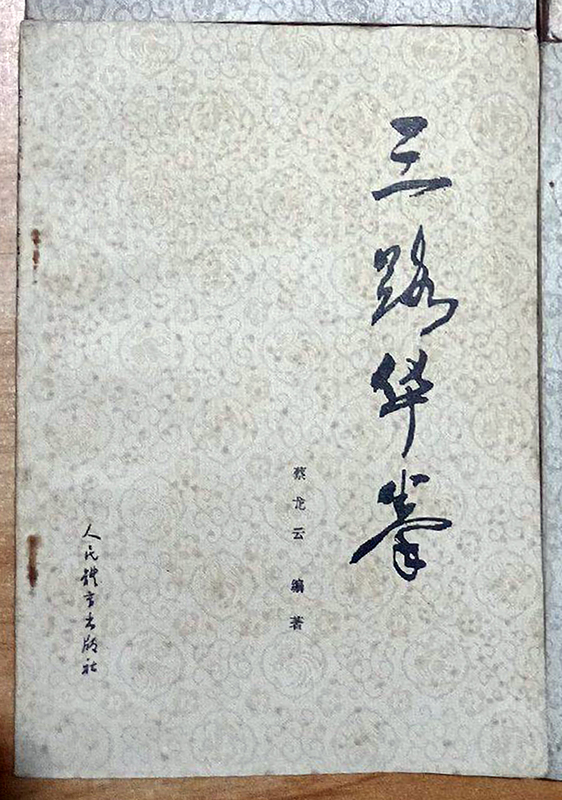 三路华拳
蔡龙云 编著
人民體育出版社